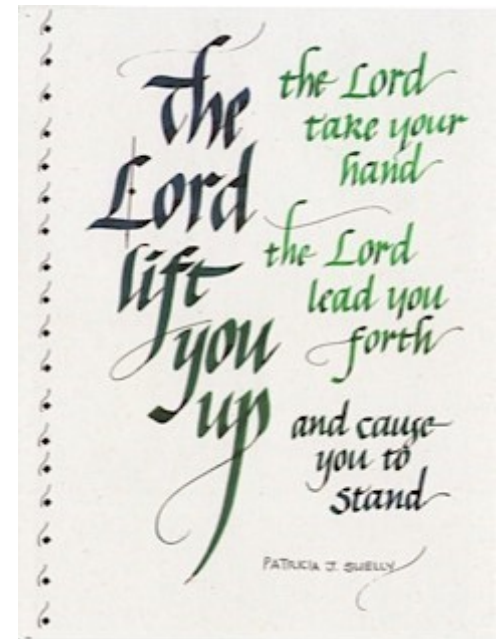 the
Lord
lift
you
up
the Lord
take your
hand
the Lord
lead you
forth
and cause
you to
stand
PATRICIA J. SHELLY